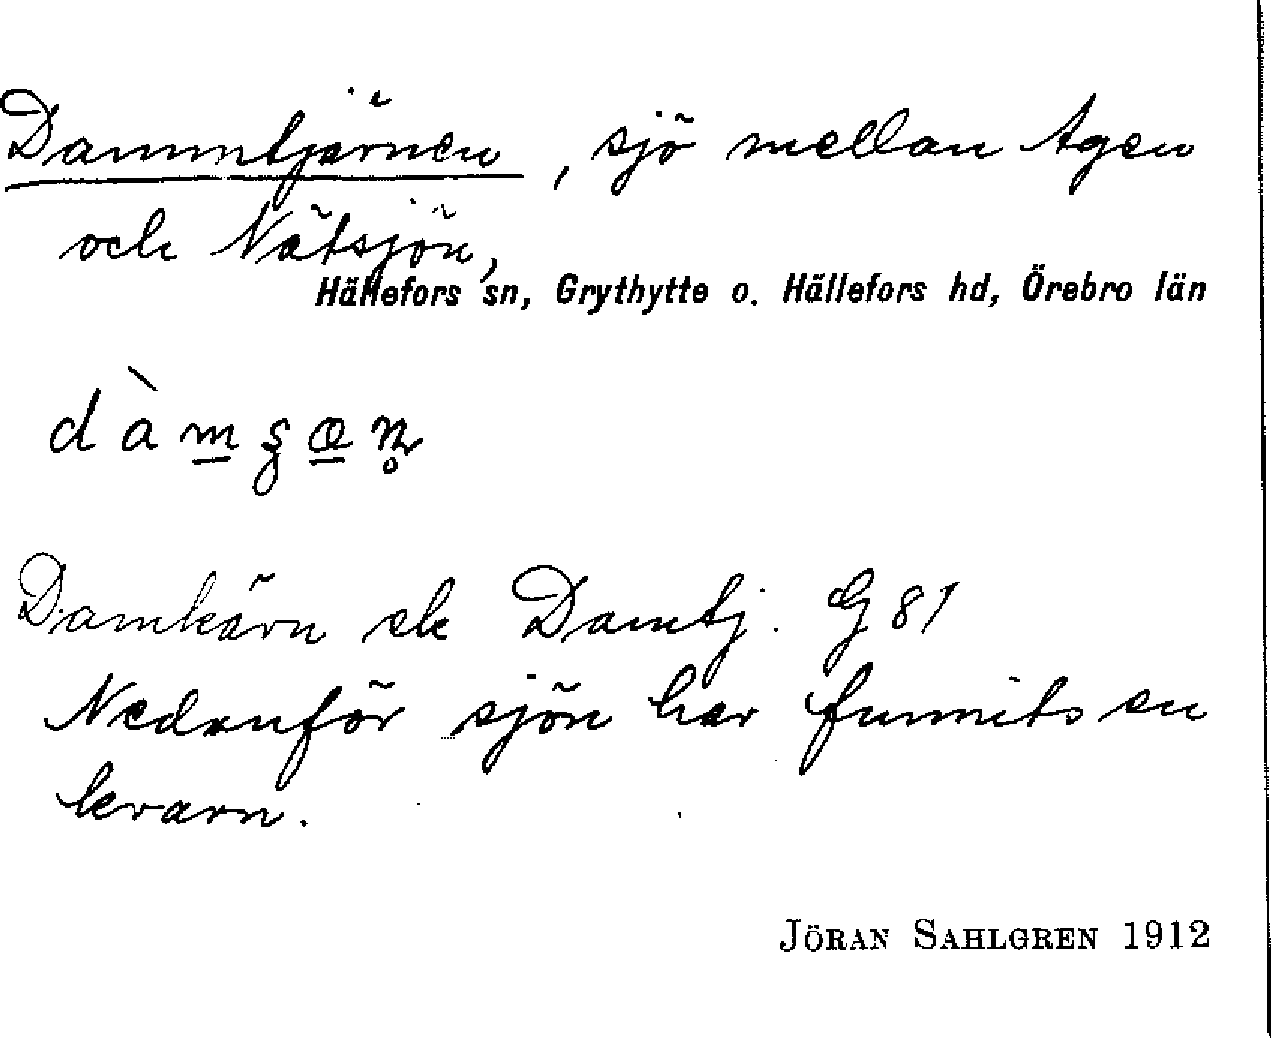 Dammtjärnen, sjö mellan Agen
och Nätsjön,
Hällefors sn, Grythytte o. Hällefors hd, Örebro län
Damkärn ek Damtj. G 81
Nedanför sjön har funnits en
kvarn.
JÖRAN SAHLGREN 1912